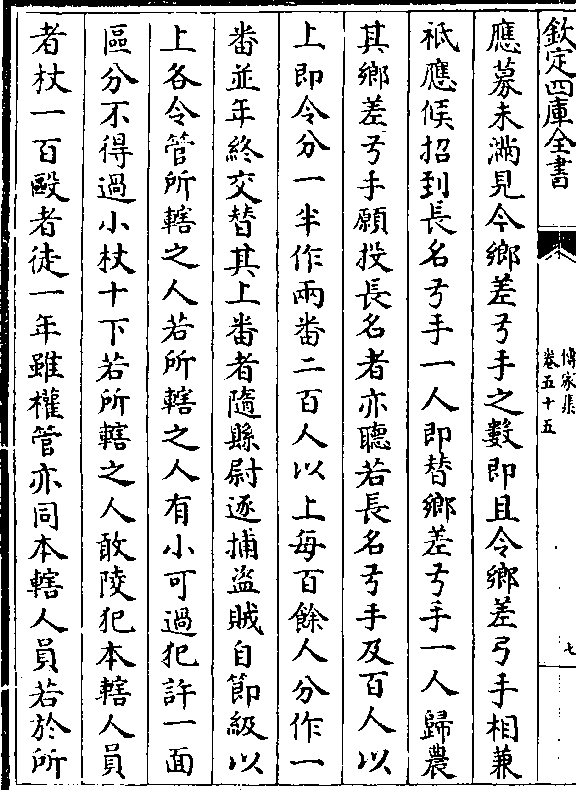 欽定四庫全書
傳家集
卷五十五
七
應募未滿見今鄉差弓手之數即且令鄉差弓手相兼
祗應候招到長名弓手一人即替鄉差弓手一人歸農
其鄉差弓手願投長名者亦聽若長名弓手及百人以
上即令分一半作兩番二百人以上每百餘人分作一
番並年終交替其上番者隨縣尉逐捕盜賊自節級以
上各令管所轄之人若所轄之人有小可過犯許一面
區分不得過小杖十下若所轄之人敢陵犯本轄人員
者杖一百毆者徒一年雖權管亦同本轄人員若於所